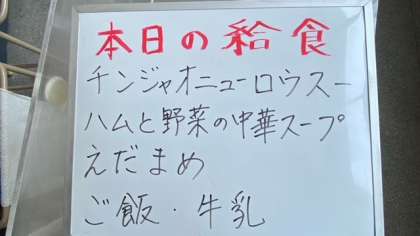 本日の給食
チンジャオニューロウスー
ハムと野菜の中華スープ
えだまめ
ご飯・牛乳